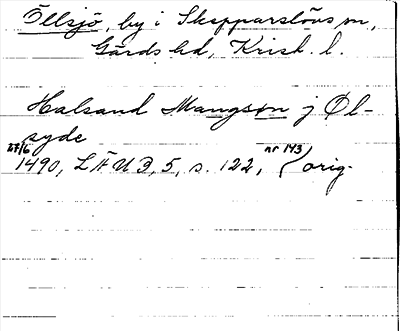 Öllsjö, by i Skepparslövs sn,
Gärds hd, Krist. l.
Halsand Mangsøn j Øl-
syde
27/6 1490, LÄUB, 5, s. 122, nr 143, orig.